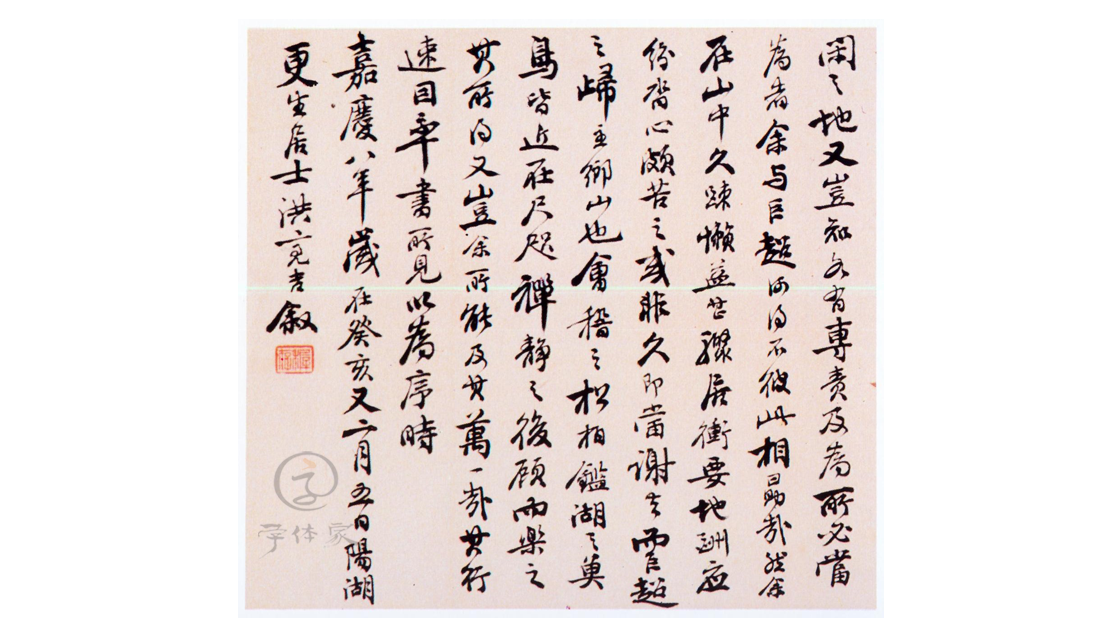 閑之地又豈知各有專責及爲所必當
爲者余与巨超何得不彼此相勗哉然余
在山中久疎懶益甚驟居衝要地酬应
紛沓心頗苦之或非久即當謝去而巨超
之歸主鄉山也會稽之松柏鑑湖之奠
鳥皆近在尺咫禪静之後顧而樂之
其所得又豈余所能及其萬一哉其行
速因率書所見以爲序時
嘉慶八年歲在癸亥又二月五日陽湖
更生居士洪亮吉叙
字体家